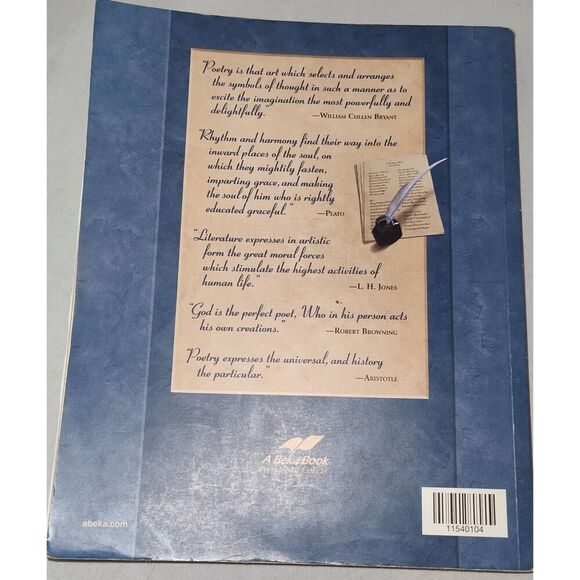 "Poetry is that art which selects and arranges
the symbols of thought in such a manner as to
excite the imagination the most powerfully and
delightfully." —William Cullen Bryant
"Rhythm and harmony find their way into the
inward places of the soul, on
which they mightily fasten,
imparting grace, and making
the soul of him who is rightly
educated graceful." —Plato
"Literature expresses in artistic
form the great moral forces
which stimulate the highest activities of
human life." —L. H. Jones
"God is the perfect poet, Who in his person acts
his own creations." —Robert Browning
"Poetry expresses the universal, and history
the particular." —Aristotle
A Beka Book
Pensacola, Florida
abeka.com
11540104